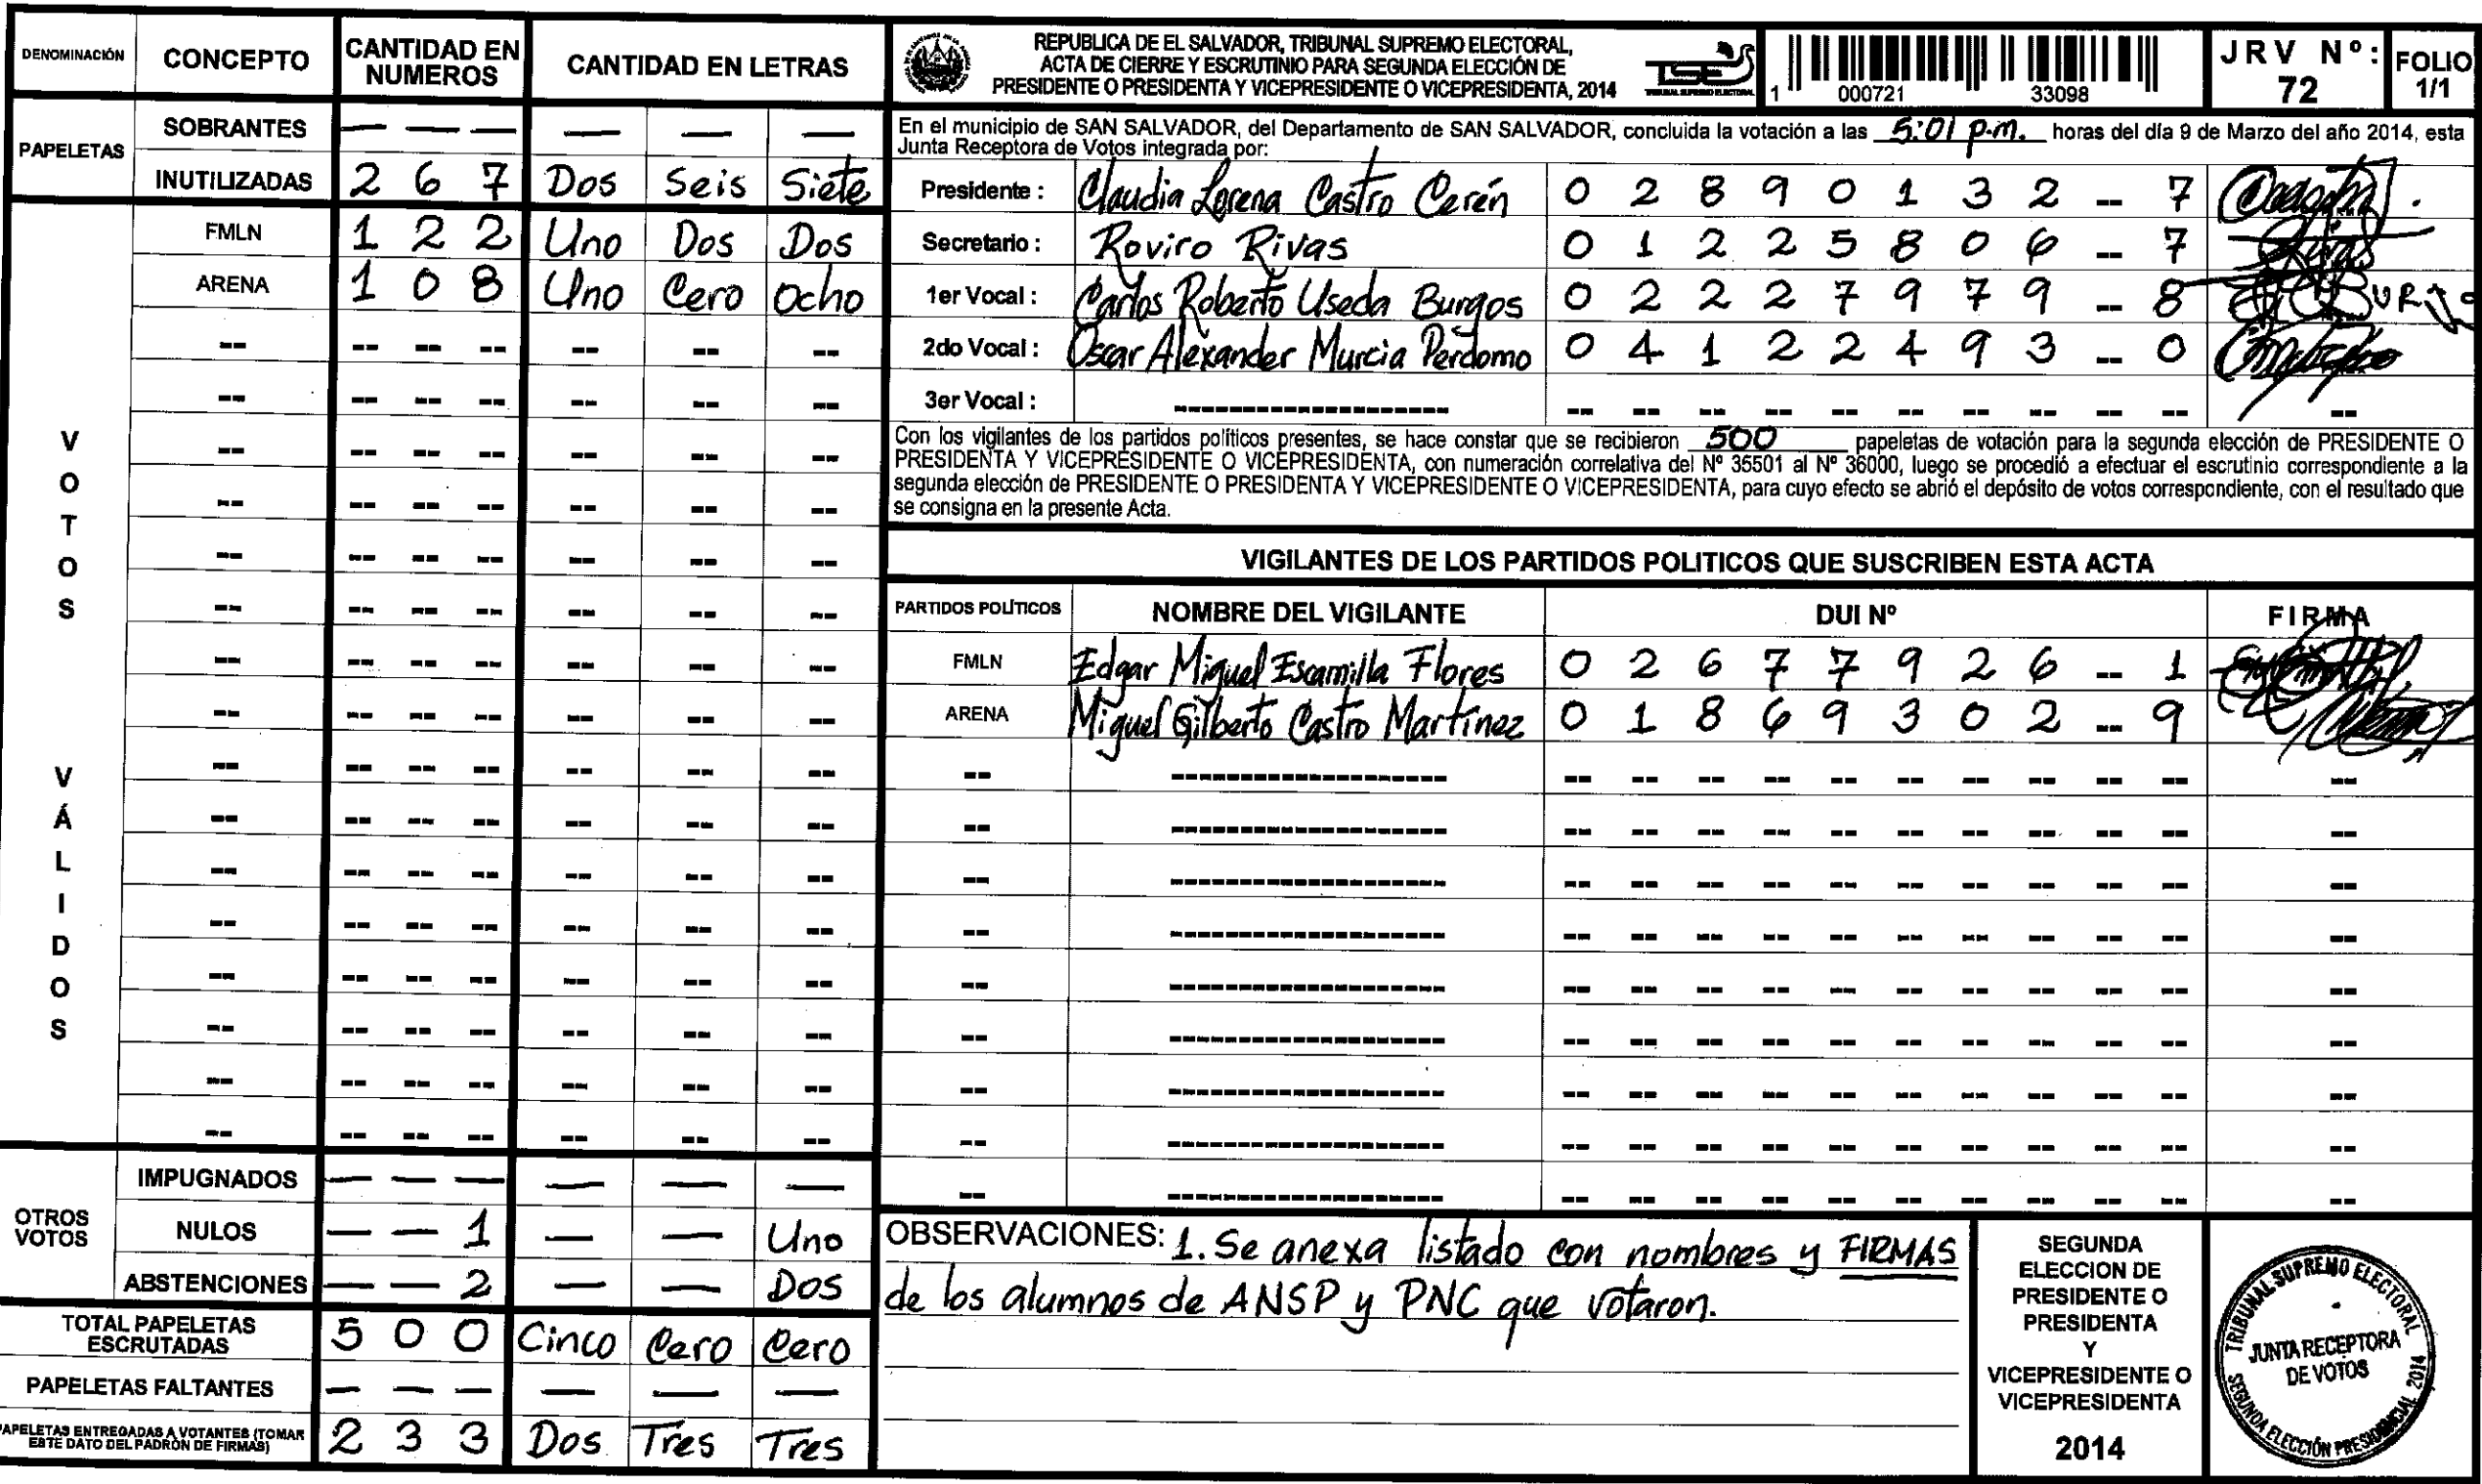 DENOMINACIÓN CONCEPTO CANTIDAD EN NUMEROS CANTIDAD EN LETRAS
PAPELETAS
SOBRANTES — — — — — —
INUTILIZADAS 2 6 7 Dos Seis Siete
VOTOS VÁLIDOS
FMLN 1 2 2 Uno Dos Dos
ARENA 1 0 8 Uno Cero Ocho
OTROS VOTOS
IMPUGNADOS — — — — — —
NULOS — — 1 — — Uno
ABSTENCIONES — — 2 — — Dos
TOTAL PAPELETAS ESCRUTADAS 5 0 0 Cinco Cero Cero
PAPELETAS FALTANTES — — — — — —
PAPELETAS ENTREGADAS A VOTANTES (TOMAR ESTE DATO DEL PADRÓN DE FIRMAS) 2 3 3 Dos Tres Tres
REPUBLICA DE EL SALVADOR, TRIBUNAL SUPREMO ELECTORAL,
ACTA DE CIERRE Y ESCRUTINIO PARA SEGUNDA ELECCIÓN DE
PRESIDENTE O PRESIDENTA Y VICEPRESIDENTE O VICEPRESIDENTA, 2014
TSE
TRIBUNAL SUPREMO ELECTORAL
1 000721 33098
JRV Nº: 72
FOLIO 1/1
En el municipio de SAN SALVADOR, del Departamento de SAN SALVADOR, concluida la votación a las 5:01 p.m. horas del día 9 de Marzo del año 2014, esta
Junta Receptora de Votos integrada por:
Presidente : Claudia Lorena Castro Cerén 0 2 8 9 0 1 3 2 -- 7
Secretario : Roviro Rivas 0 1 2 2 5 8 0 6 -- 7
1er Vocal : Carlos Roberto Useda Burgos 0 2 2 2 7 9 7 9 -- 8
2do Vocal : Oscar Alexander Murcia Perdomo 0 4 1 2 2 4 9 3 -- 0
3er Vocal : -------------------
Con los vigilantes de los partidos políticos presentes, se hace constar que se recibieron 500 papeletas de votación para la segunda elección de PRESIDENTE O
PRESIDENTA Y VICEPRESIDENTE O VICEPRESIDENTA, con numeración correlativa del Nº 35501 al Nº 36000, luego se procedió a efectuar el escrutinio correspondiente a la
segunda elección de PRESIDENTE O PRESIDENTA Y VICEPRESIDENTE O VICEPRESIDENTA, para cuyo efecto se abrió el depósito de votos correspondiente, con el resultado que
se consigna en la presente Acta.
VIGILANTES DE LOS PARTIDOS POLITICOS QUE SUSCRIBEN ESTA ACTA
PARTIDOS POLÍTICOS NOMBRE DEL VIGILANTE DUI Nº FIRMA
FMLN Edgar Miguel Escamilla Flores 0 2 6 7 7 9 2 6 -- 1
ARENA Miguel Gilberto Castro Martínez 0 1 8 6 9 3 0 2 -- 9
OBSERVACIONES: 1. Se anexa listado con nombres y FIRMAS
de los alumnos de ANSP y PNC que votaron.
SEGUNDA
ELECCION DE
PRESIDENTE O
PRESIDENTA
Y
VICEPRESIDENTE O
VICEPRESIDENTA
2014
TRIBUNAL SUPREMO ELECTORAL
JUNTA RECEPTORA
DE VOTOS
SEGUNDA ELECCIÓN PRESIDENCIAL 2014